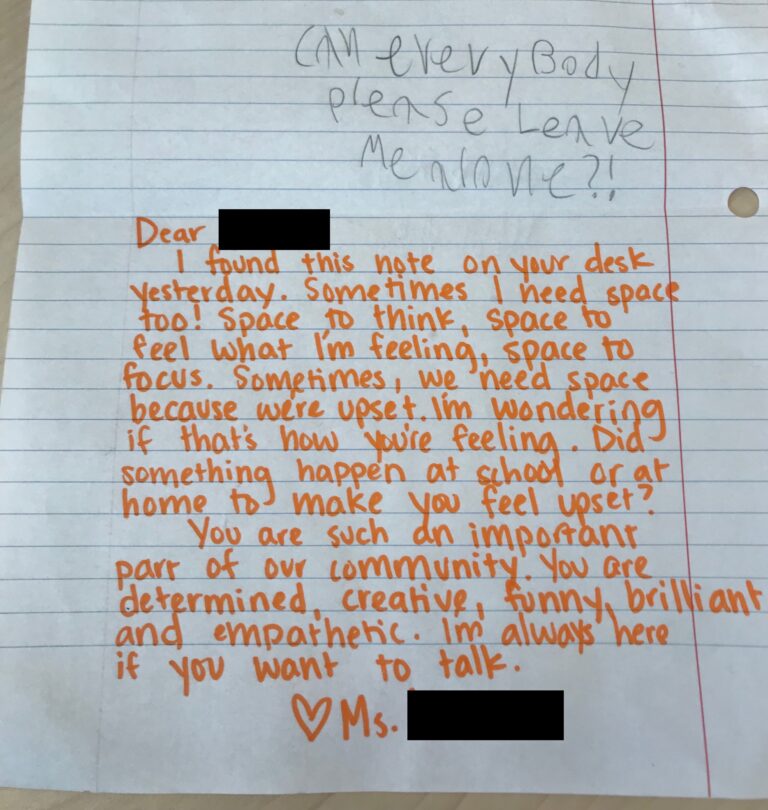 CAN everyBody
please Leave
Me alone?!
Dear
I found this note on your desk
yesterday. Sometimes I need space
too! Space to think, space to
feel what I'm feeling, space to
focus. Sometimes, we need space
because we're upset. I'm wondering
if that's how you're feeling. Did
something happen at school or at
home to make you feel upset?
You are such an important
part of our community. You are
determined, creative, funny, brilliant
and empathetic. I'm always here
if you want to talk.
♡ Ms.